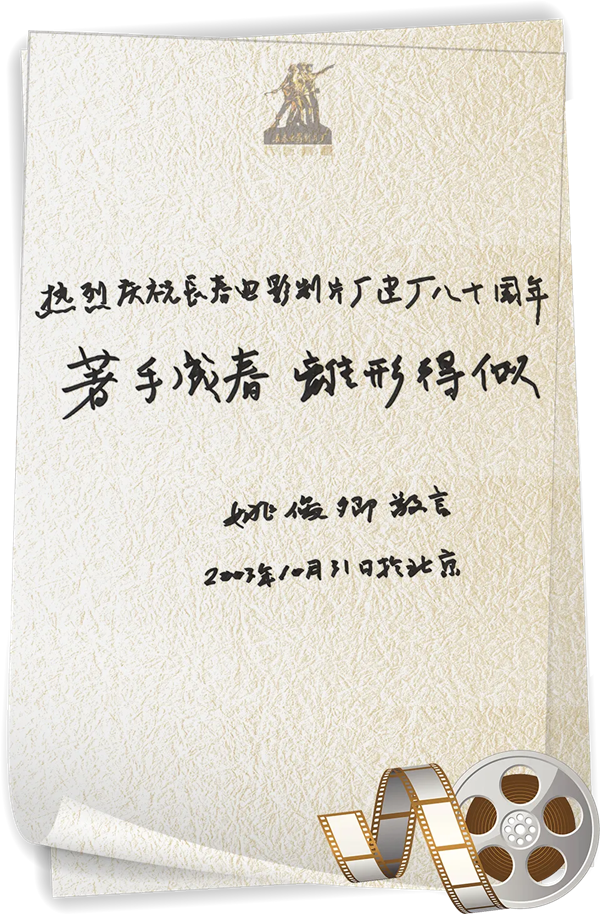 热烈庆祝長春电影制片厂建厂八十周年
著手成春 離形得似
姚俊卿敬言
2003年10月31日於北京